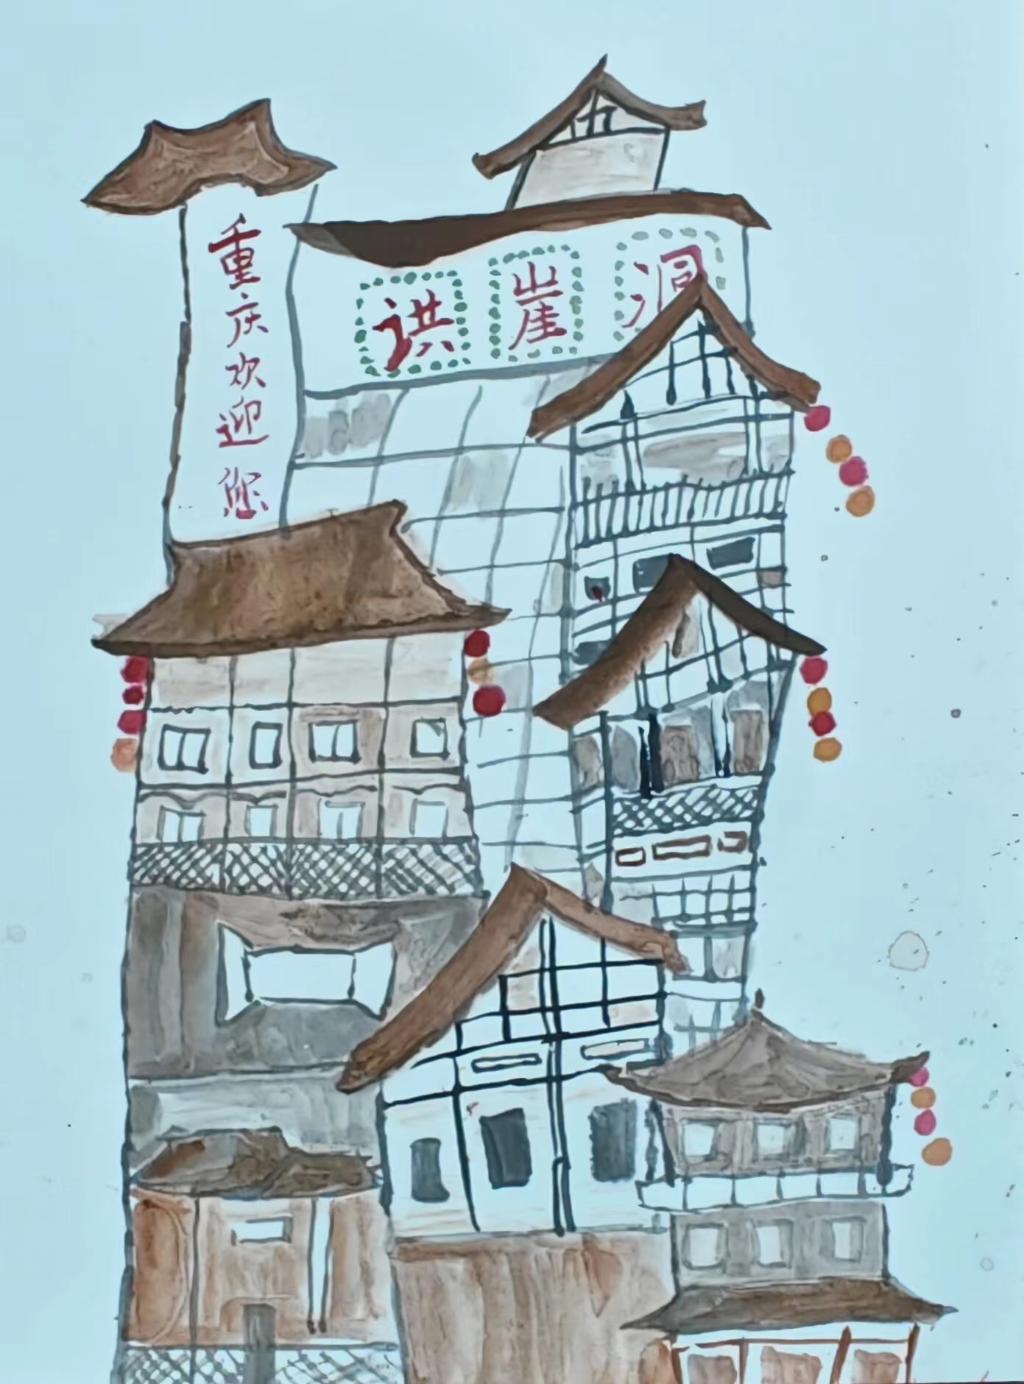 重庆欢迎您
洪崖洞